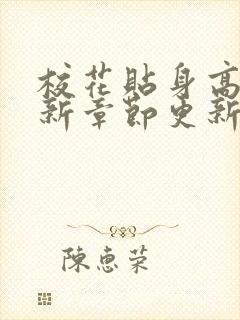 校花貼身高
新章節更新
陳惠榮